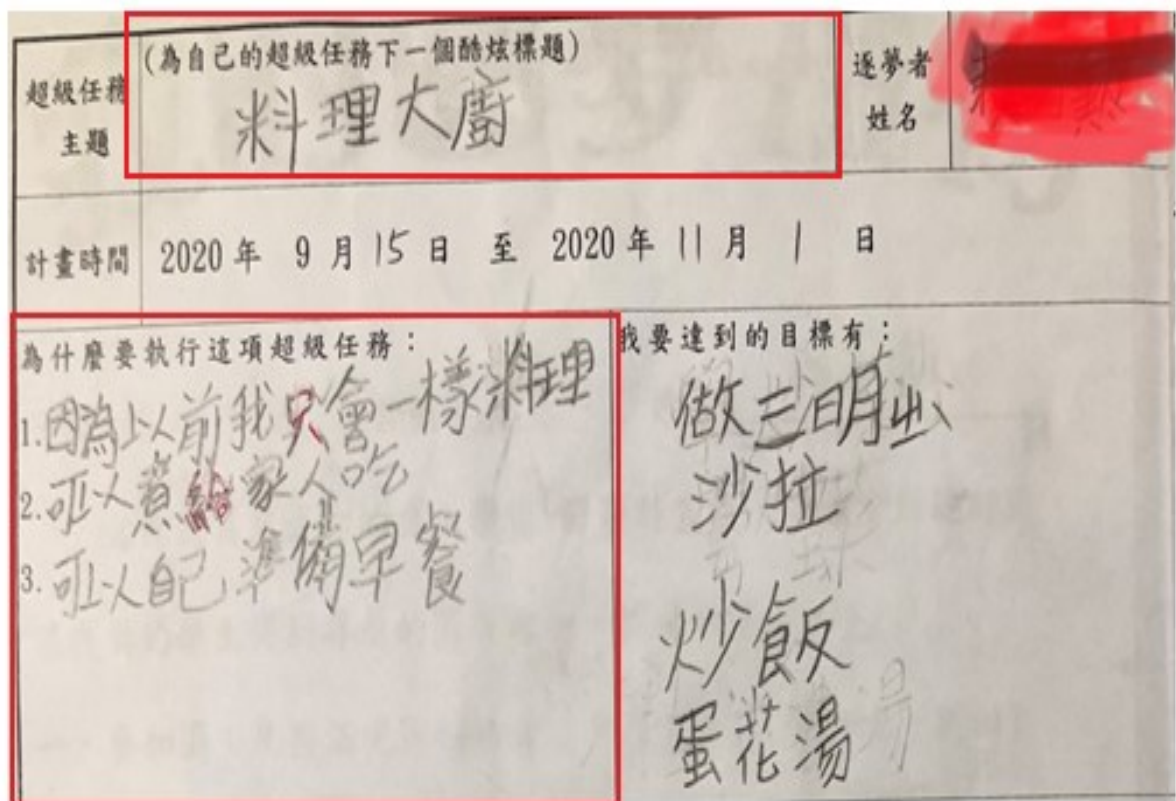 超級任務
主題
(為自己的超級任務下一個酷炫標題)
料理大廚
逐夢者
姓名
計畫時間
2020年 9月15日 至 2020年11月 1 日
為什麼要執行這項超級任務：
1.因為以前我只會一樣料理
2.可以煮給家人吃
3.可以自己準備早餐
我要達到的目標有：
做三明治
沙拉
炒飯
蛋花湯